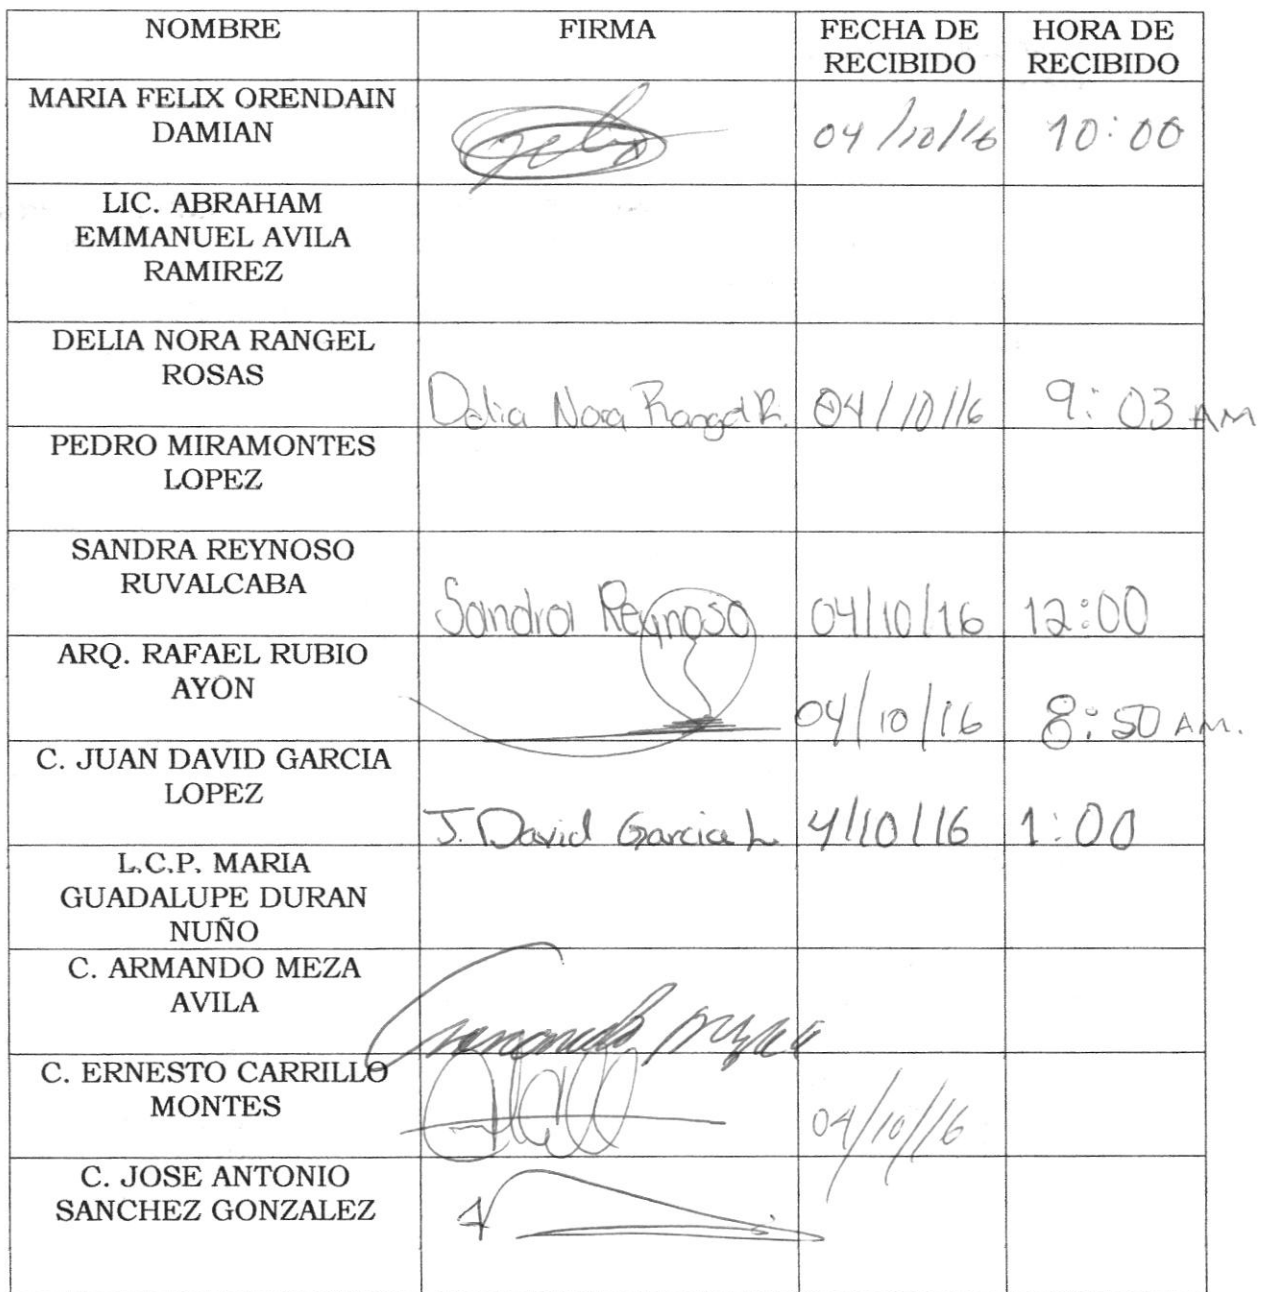 NOMBRE FIRMA FECHA DE RECIBIDO HORA DE RECIBIDO
MARIA FELIX ORENDAIN
DAMIAN 04/10/16 10:00
LIC. ABRAHAM
EMMANUEL AVILA
RAMIREZ
DELIA NORA RANGEL
ROSAS
Delia Nora Rangel R. 04/10/16 9:03 AM
PEDRO MIRAMONTES
LOPEZ
SANDRA REYNOSO
RUVALCABA
Sandra Reynoso 04/10/16 12:00
ARQ. RAFAEL RUBIO
AYON
04/10/16 8:50 AM.
C. JUAN DAVID GARCIA
LOPEZ
J. David Garcia L. 4/10/16 1:00
L.C.P. MARIA
GUADALUPE DURAN
NUÑO
C. ARMANDO MEZA
AVILA
Armando Meza
C. ERNESTO CARRILLO
MONTES
04/10/16
C. JOSE ANTONIO
SANCHEZ GONZALEZ